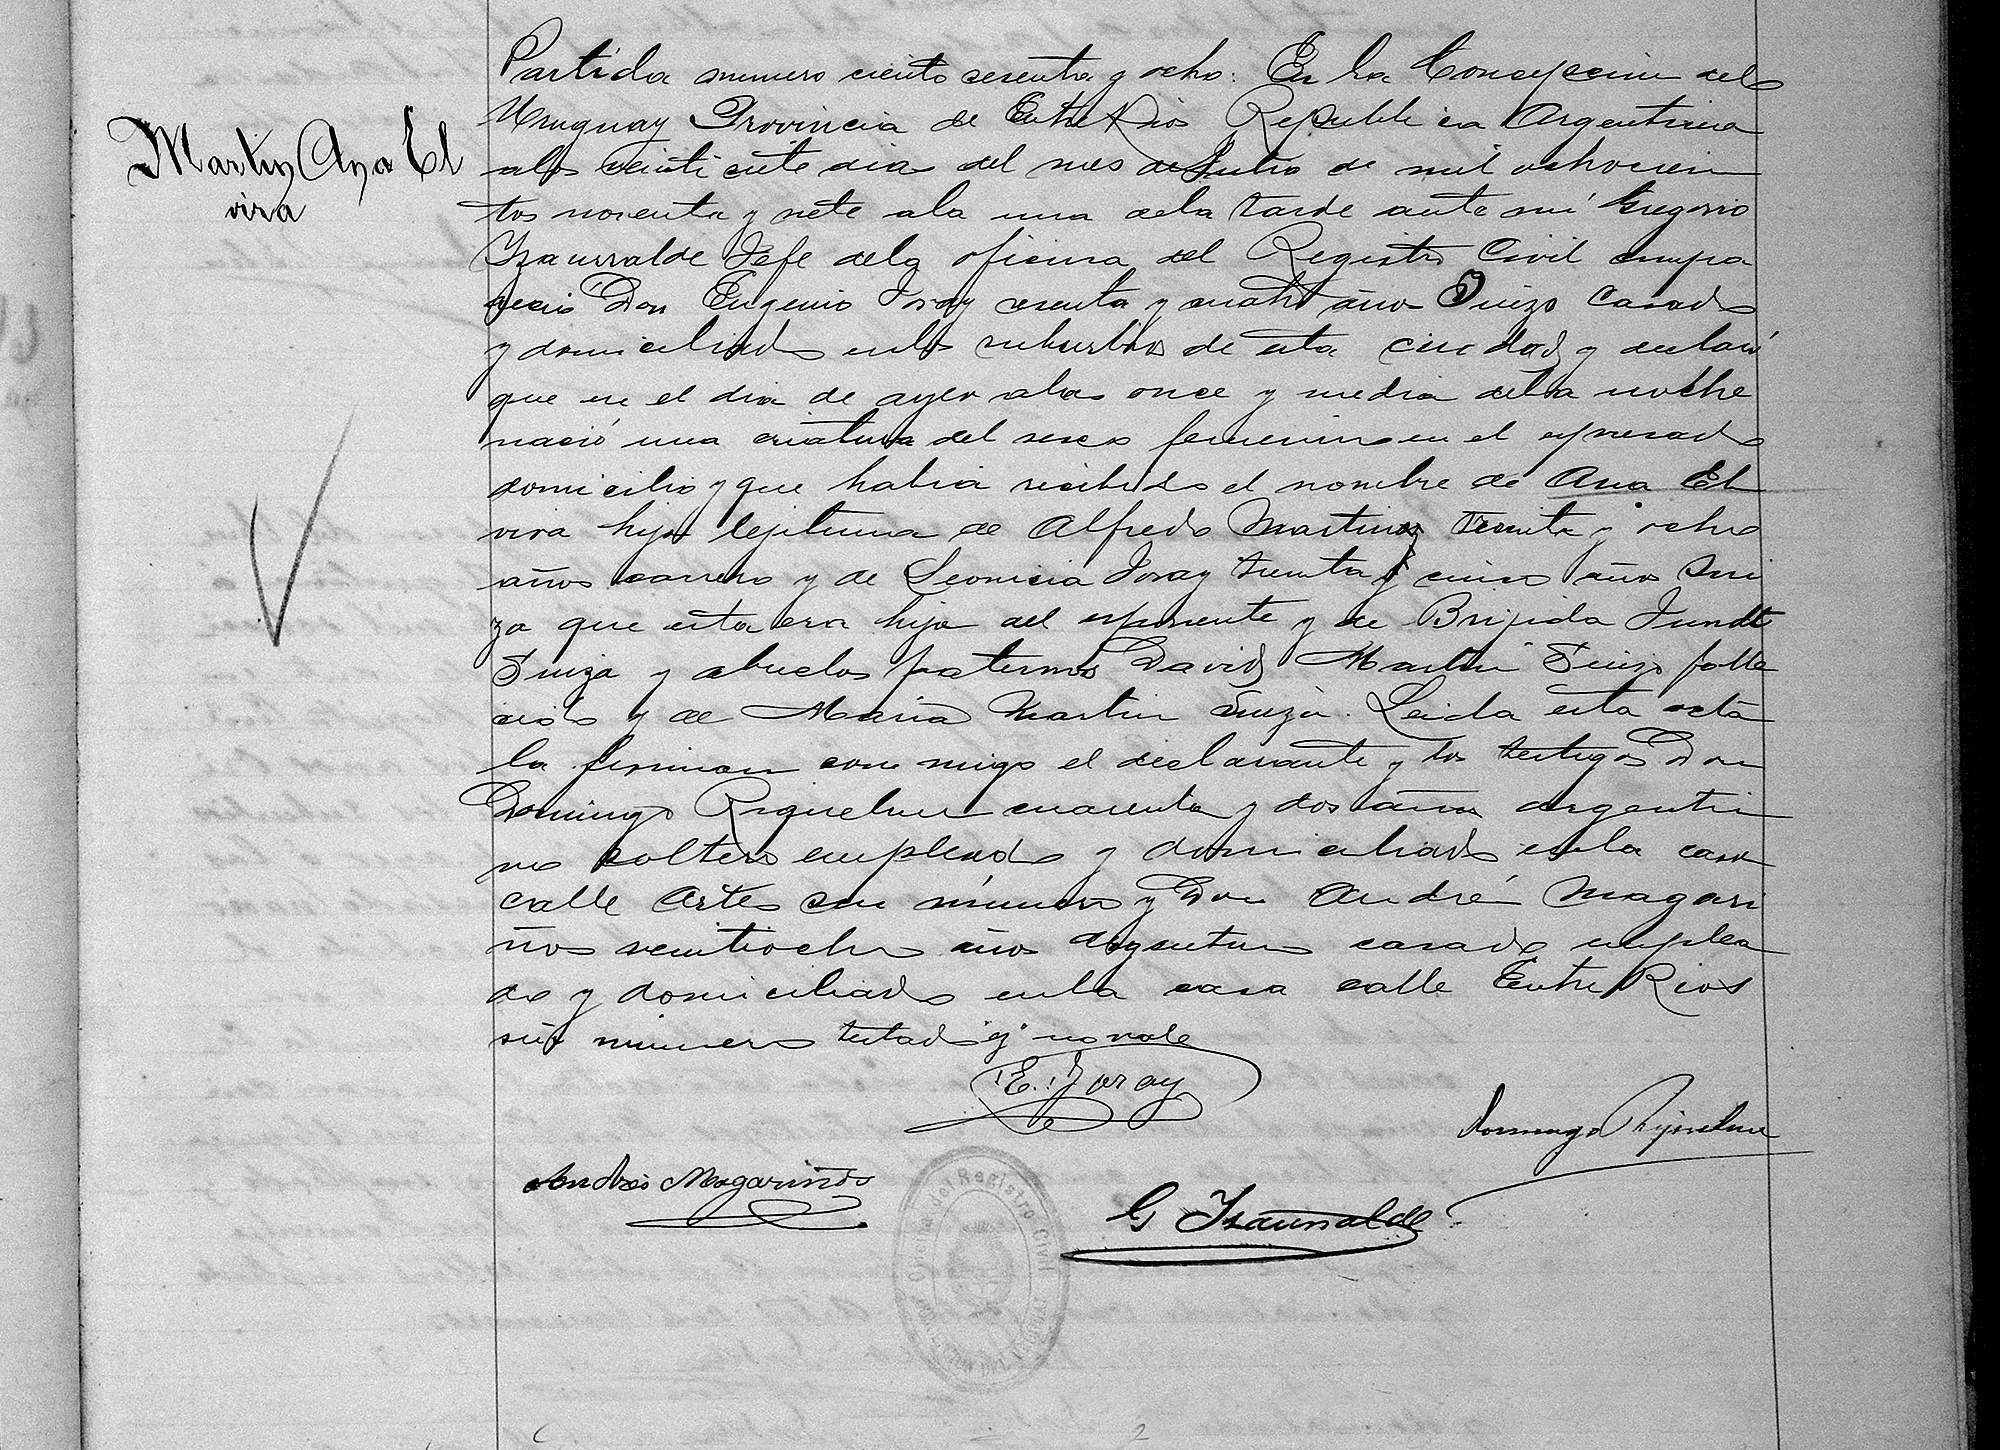 Martin Ana El
vira
Partida numero ciento sesenta y ocho: En la Concepcion del
Uruguay Provincia de Entre Rios Republica Argentina
alos veinti siete dias del mes de Julio de mil ochocien
tos noventa y siete ala una dela tarde ante mi Gregorio
Izaurralde Jefe dela oficina del Registro Civil compa
recio Don Eugenio Joray sesenta y cuatro años Suizo Casado
y domiciliado enlos suburbios de esta ciudad y declaró
que en el dia de ayer alas once y media dela noche
nació una criatura del sexo femenino en el espresado
domicilio y que habia recibido el nombre de Ana El
vira hija lejitima de Alfredo Martin treinta y ocho
años carrero y de Leonicia Joray treinta y cinco años Sui
za que esta era hija del esponente y de Brijida Jundt
Suiza y abuelos paternos David Martin Suizo falle
cido y de Maria Martin Suiza. Leida esta acta
la firman con migo el declarante y los testigos Don
Domingo Riquelme cuarenta y dos años argenti
no soltero empleado y domiciliado enla casa
calle Artes sin número y Don André Magari
ños veintiocho años Argentino casado emplea
do y domiciliado enla casa calle Entre Rios
sin numero testado "y" no vale
E. Joray
Domingo Riquelme
Andres Magariños
G Izaurralde
Oficina del Registro Civil